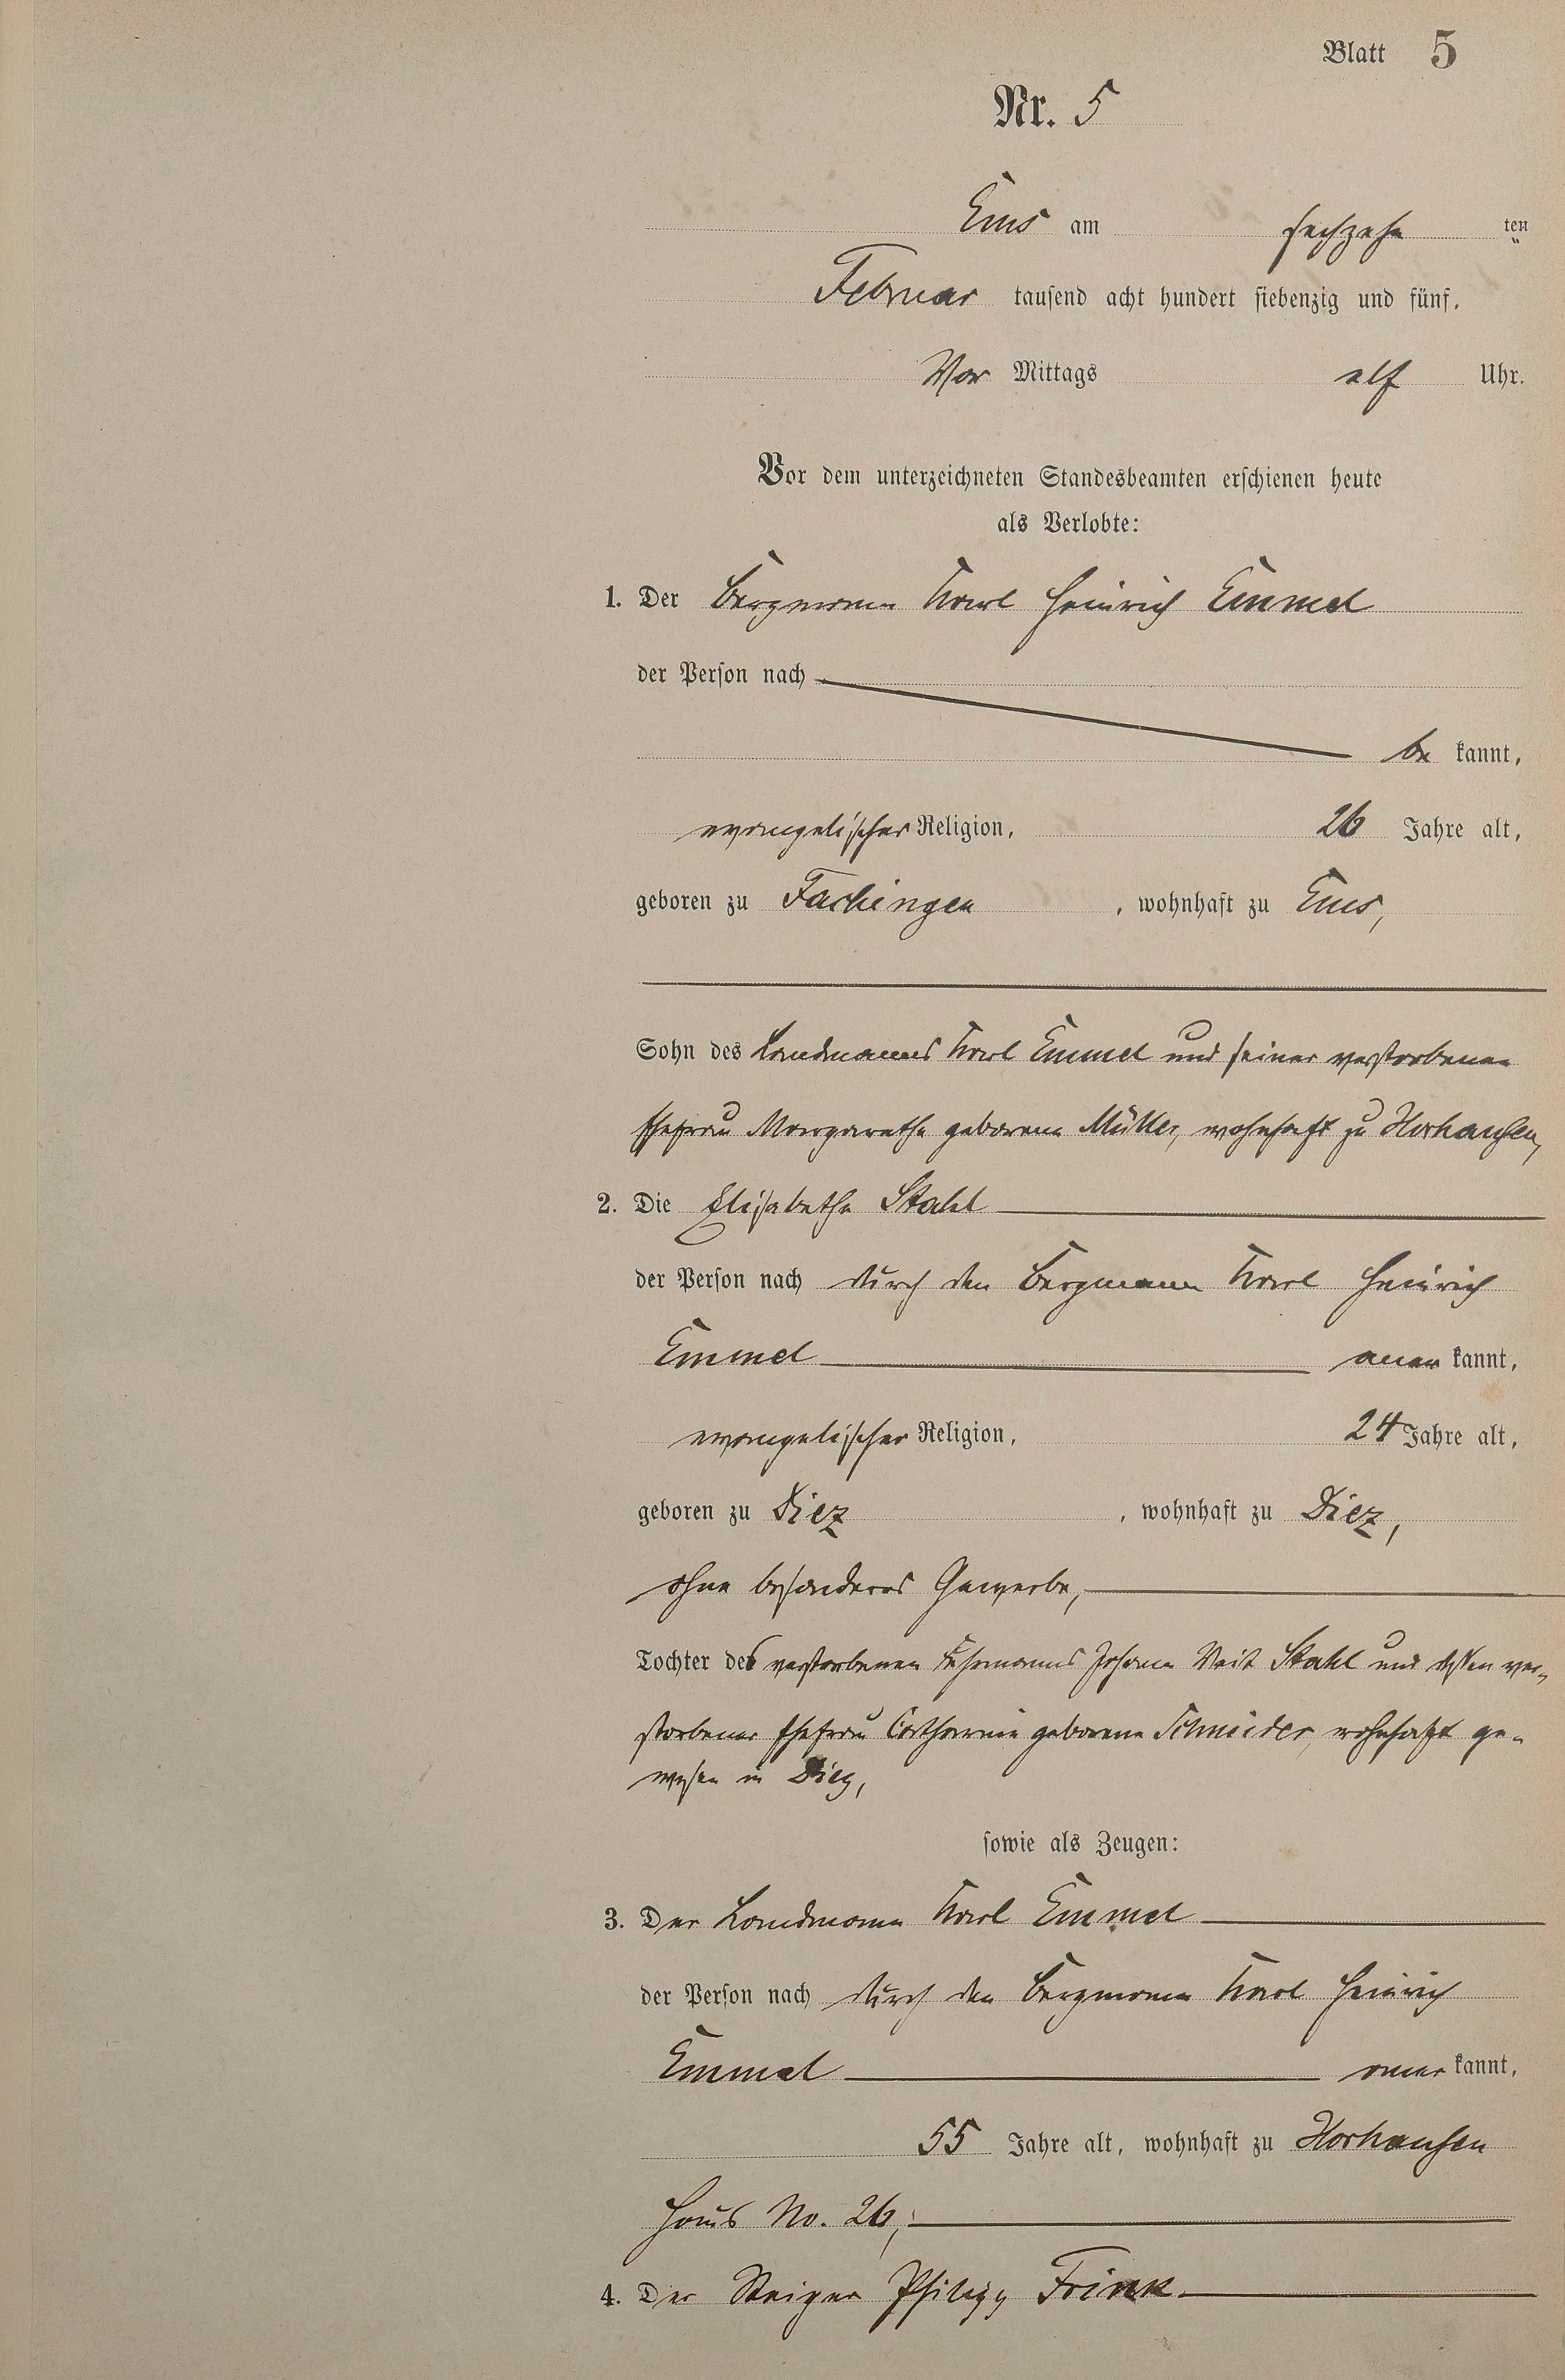 Blatt 5
Nr. 5
Ems am sechzehn ten
Februar tausend acht hundert siebenzig und fünf.
Vor Mittags elf Uhr.
Vor dem unterzeichneten Standesbeamten erschienen heute
als Verlobte:
1. Der Bergmann Karl Heinrich Emmel
der Person nach
be kannt,
evangelischer Religion, 26 Jahre alt,
geboren zu Fachingen, wohnhaft zu Ems,
Sohn des Landmanns Karl Emmel und seiner verstorbenen
Ehefrau Margarethe geborene Müller, wohnhaft zu Horhausen,
2. Die Elisabethe Stahl
der Person nach durch den Bergmann Karl Heinrich
Emmel aner kannt,
evangelischer Religion, 24 Jahre alt,
geboren zu Diez, wohnhaft zu Diez,
ohne besonderes Gewerbe,
Tochter des verstorbenen Johann Veit Stahl und dessen ver-
storbener Ehefrau Catharine geborene Schneider, wohnhaft ge-
wesen in Diez,
sowie als Zeugen:
3. Der Landmann Karl Emmel
der Person nach durch den Bergmann Karl Heinrich
Emmel aner kannt,
55 Jahre alt, wohnhaft zu Horhausen
Haus No. 26,
4. Der Steiger Philipp Frink